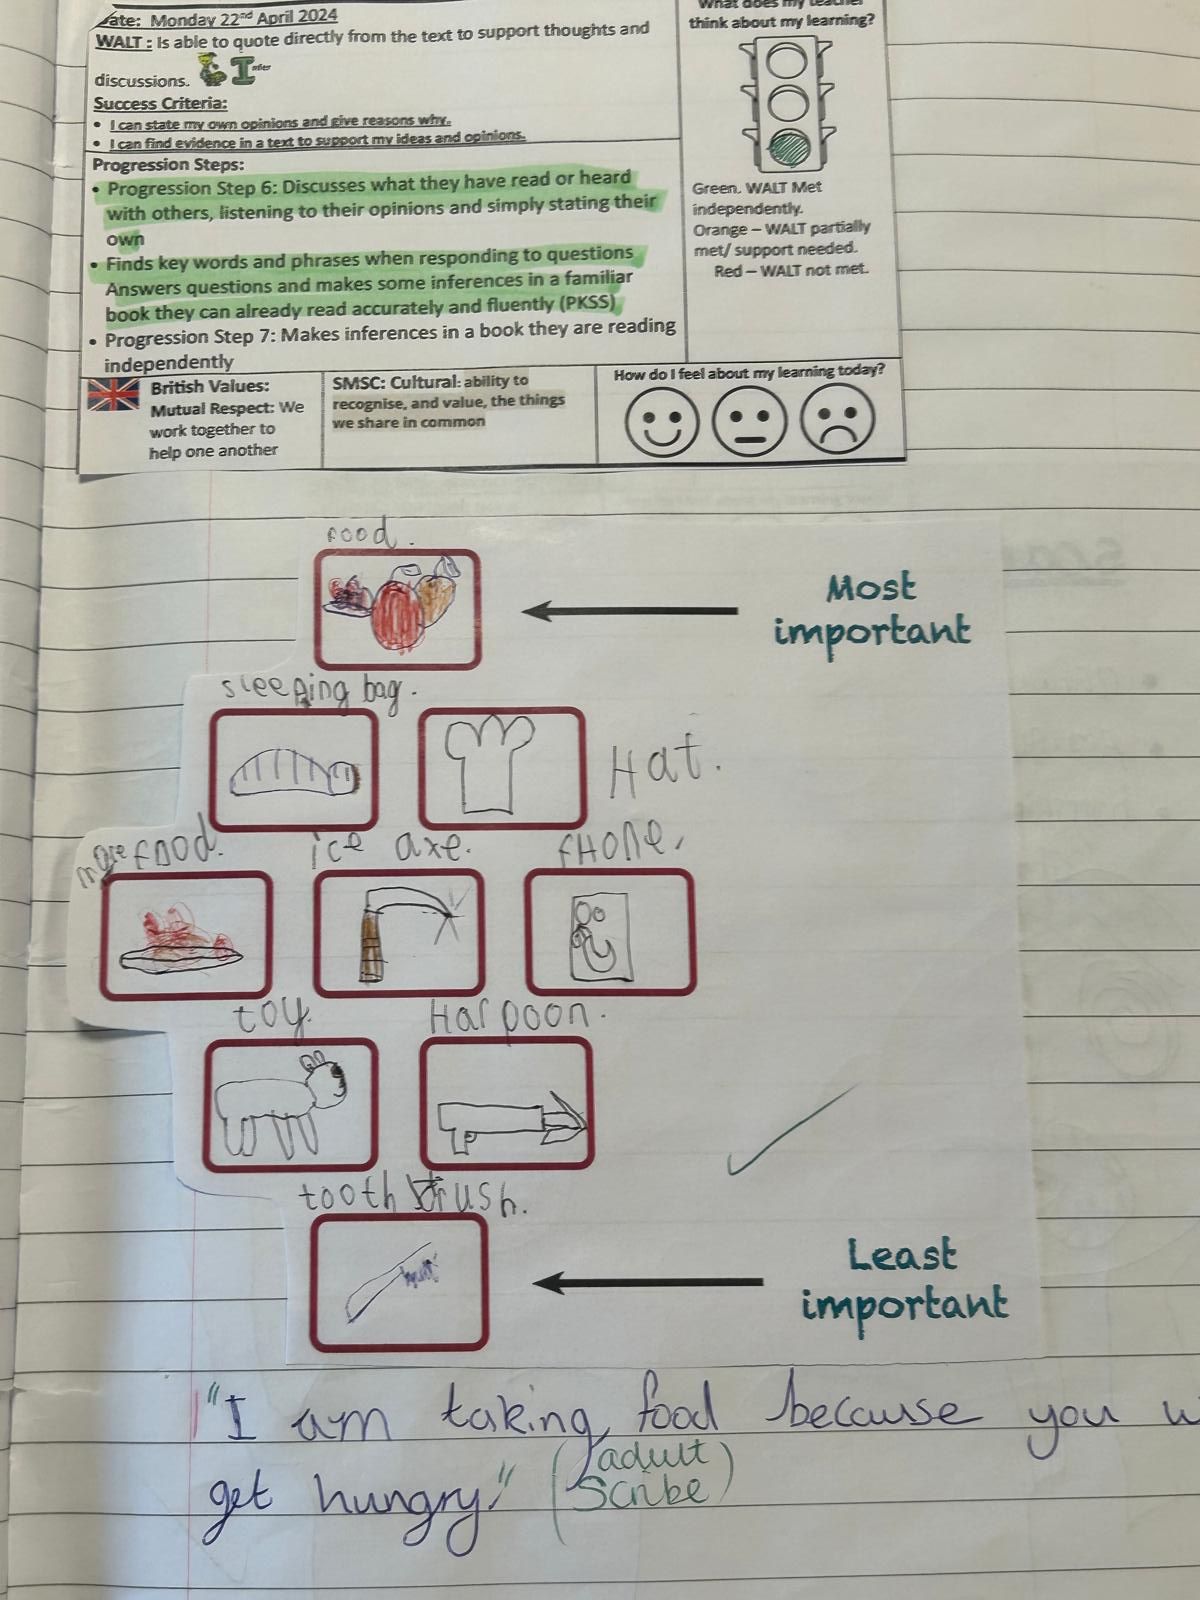 Date: Monday 22nd April 2024
WALT : Is able to quote directly from the text to support thoughts and
discussions. Infer
Success Criteria:
• I can state my own opinions and give reasons why.
• I can find evidence in a text to support my ideas and opinions.
Progression Steps:
• Progression Step 6: Discusses what they have read or heard
with others, listening to their opinions and simply stating their
own
• Finds key words and phrases when responding to questions
Answers questions and makes some inferences in a familiar
book they can already read accurately and fluently (PKSS)
• Progression Step 7: Makes inferences in a book they are reading
independently
What does my teacher
think about my learning?
Green. WALT Met
independently.
Orange – WALT partially
met/ support needed.
Red – WALT not met.
British Values:
Mutual Respect: We
work together to
help one another
SMSC: Cultural: ability to
recognise, and value, the things
we share in common
How do I feel about my learning today?
food.
Most
important
sleeping bag.
Hat.
more food.
ice axe.
fHone.
toy.
Harpoon.
tooth brush.
Least
important
"I am taking food because you
get hungry."
(adult
Scribe)